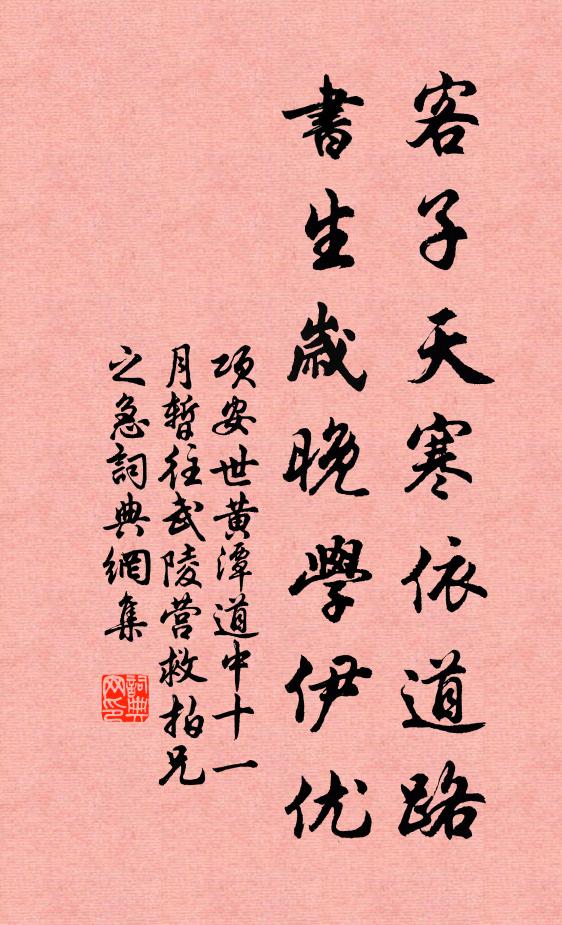 客子天寒依道路
書生歲晚學伊优
项安世黄潭道中十一
月暫往武陵营救柏兄
之急詞典網集
詞典
网印